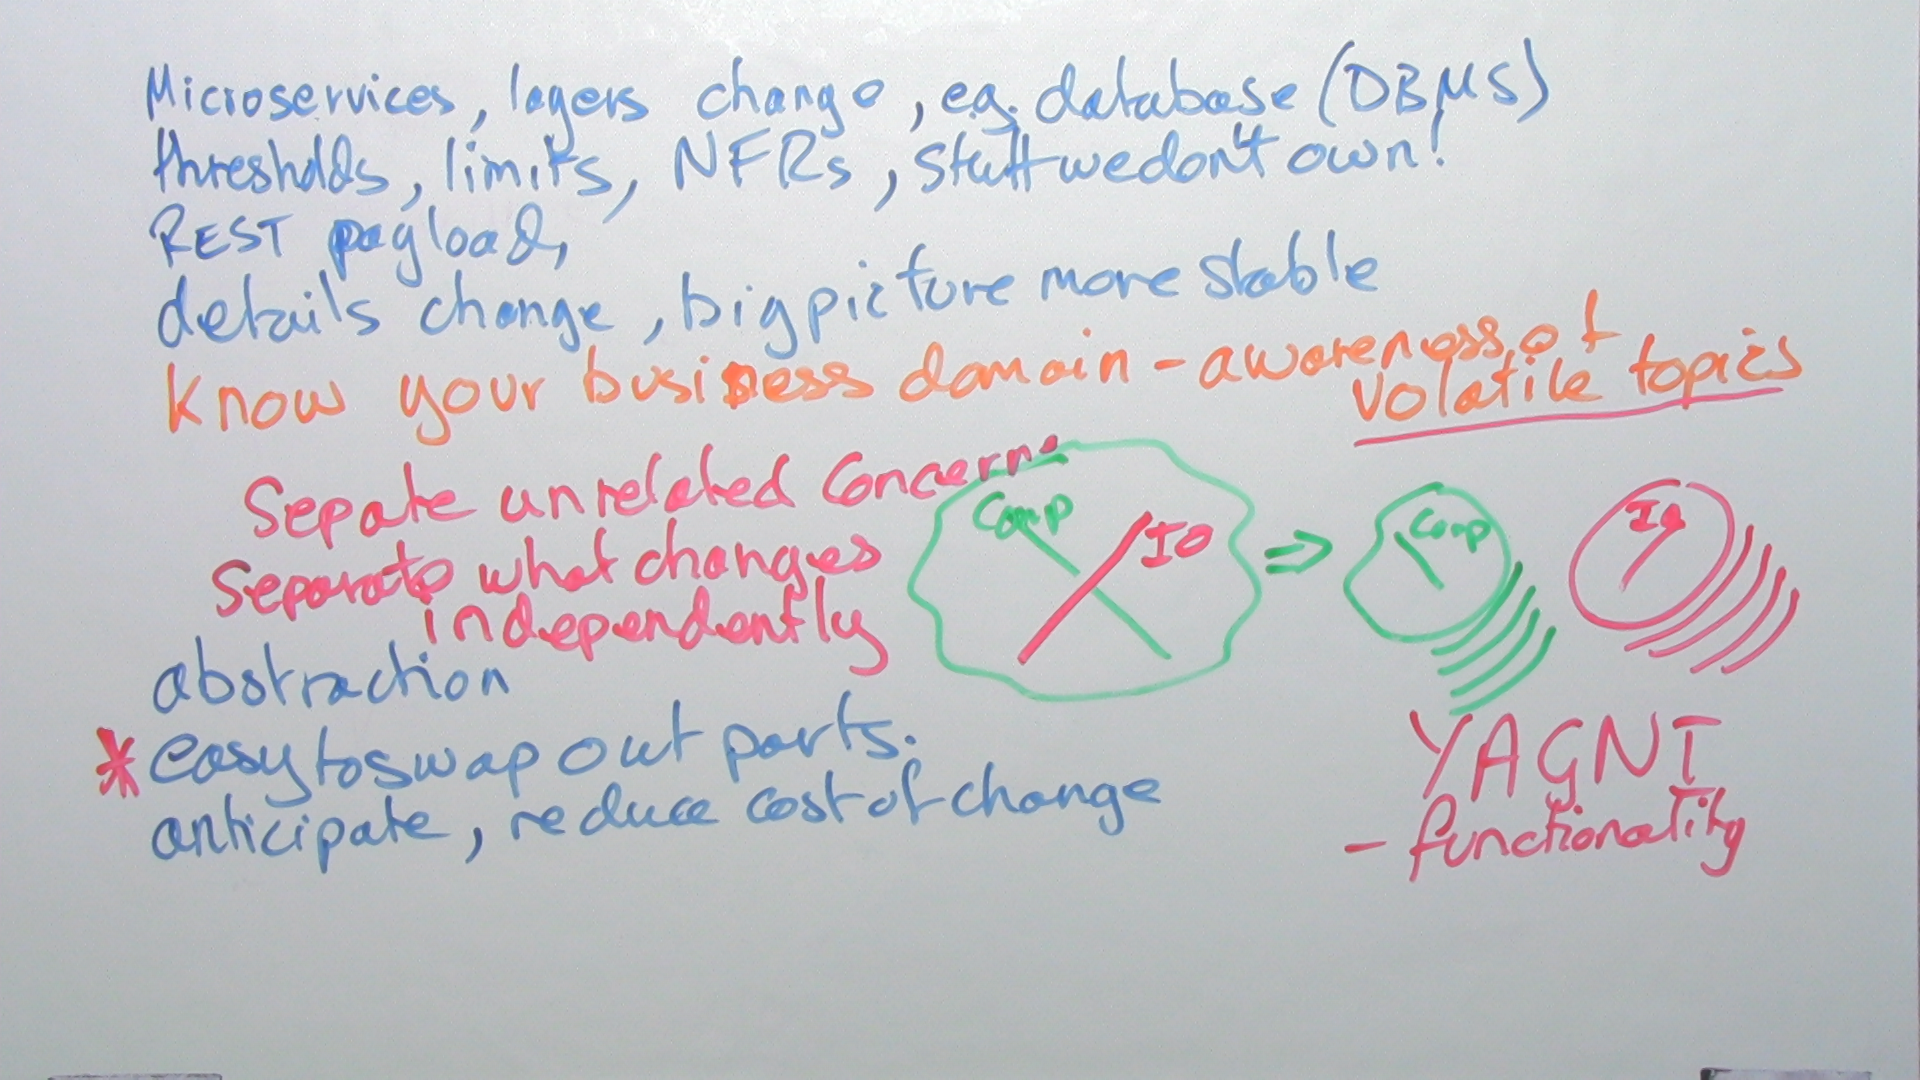 Microservices, layers change, e.g. database (DBMS)
thresholds, limits, NFRs, stuff we don't own!
REST payload,
details change, big picture more stable
Know your business domain - awareness of
volatile topics
Sepate unrelated Concerns
Separate what changes
independently
Comp
IO
⇒
Comp
IO
abstraction
* easy to swap out parts.
anticipate, reduce cost of change
YAGNI
- functionality